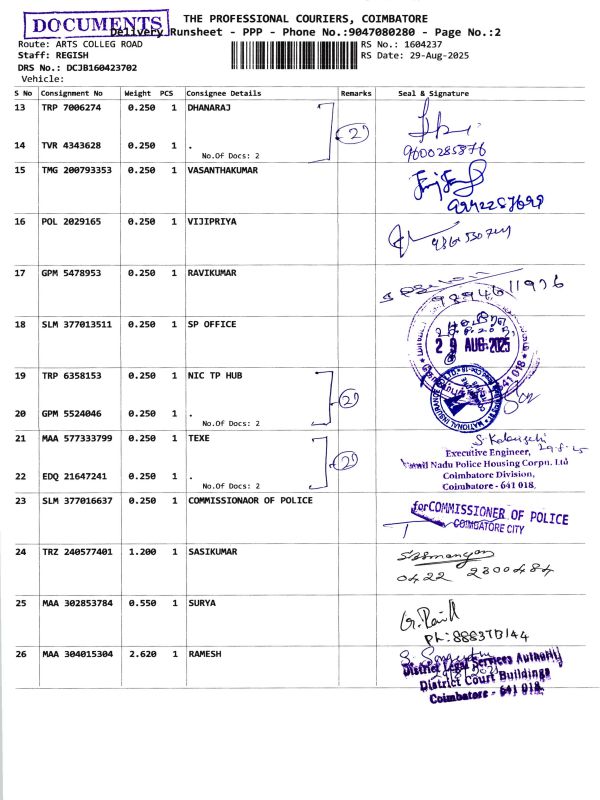 DOCUMENTS
THE PROFESSIONAL COURIERS, COIMBATORE
Delivery Runsheet - PPP - Phone No.:9047080280 - Page No.:2
Route: ARTS COLLEG ROAD
RS No.: 1604237
Staff: REGISH
RS Date: 29-Aug-2025
DRS No.: DCJB160423702
Vehicle:
S No Consignment No Weight PCS Consignee Details Remarks Seal & Signature
13 TRP 7006274 0.250 1 DHANARAJ
2
14 TVR 4343628 0.250 1 .
No.Of Docs: 2
9600285876
15 TMG 200793353 0.250 1 VASANTHAKUMAR
16 POL 2029165 0.250 1 VIJIPRIYA
17 GPM 5478953 0.250 1 RAVIKUMAR
9894611926
18 SLM 377013511 0.250 1 SP OFFICE
29 AUG 2025
641 018
19 TRP 6358153 0.250 1 NIC TP HUB
2
20 GPM 5524046 0.250 1 .
No.Of Docs: 2
21 MAA 577333799 0.250 1 TEXE
2
Executive Engineer,
Tamil Nadu Police Housing Corpn. Ltd
22 EDQ 21647241 0.250 1 .
Coimbatore Division,
No.Of Docs: 2
Coimbatore - 641 018.
23 SLM 377016637 0.250 1 COMMISSIONAOR OF POLICE
for COMMISSIONER OF POLICE
COIMBATORE CITY
24 TRZ 240577401 1.200 1 SASIKUMAR
0422 2300484
25 MAA 302853784 0.550 1 SURYA
26 MAA 304015304 2.620 1 RAMESH
District Legal Services Authority
District Court Buildings
Coimbatore - 641 018.